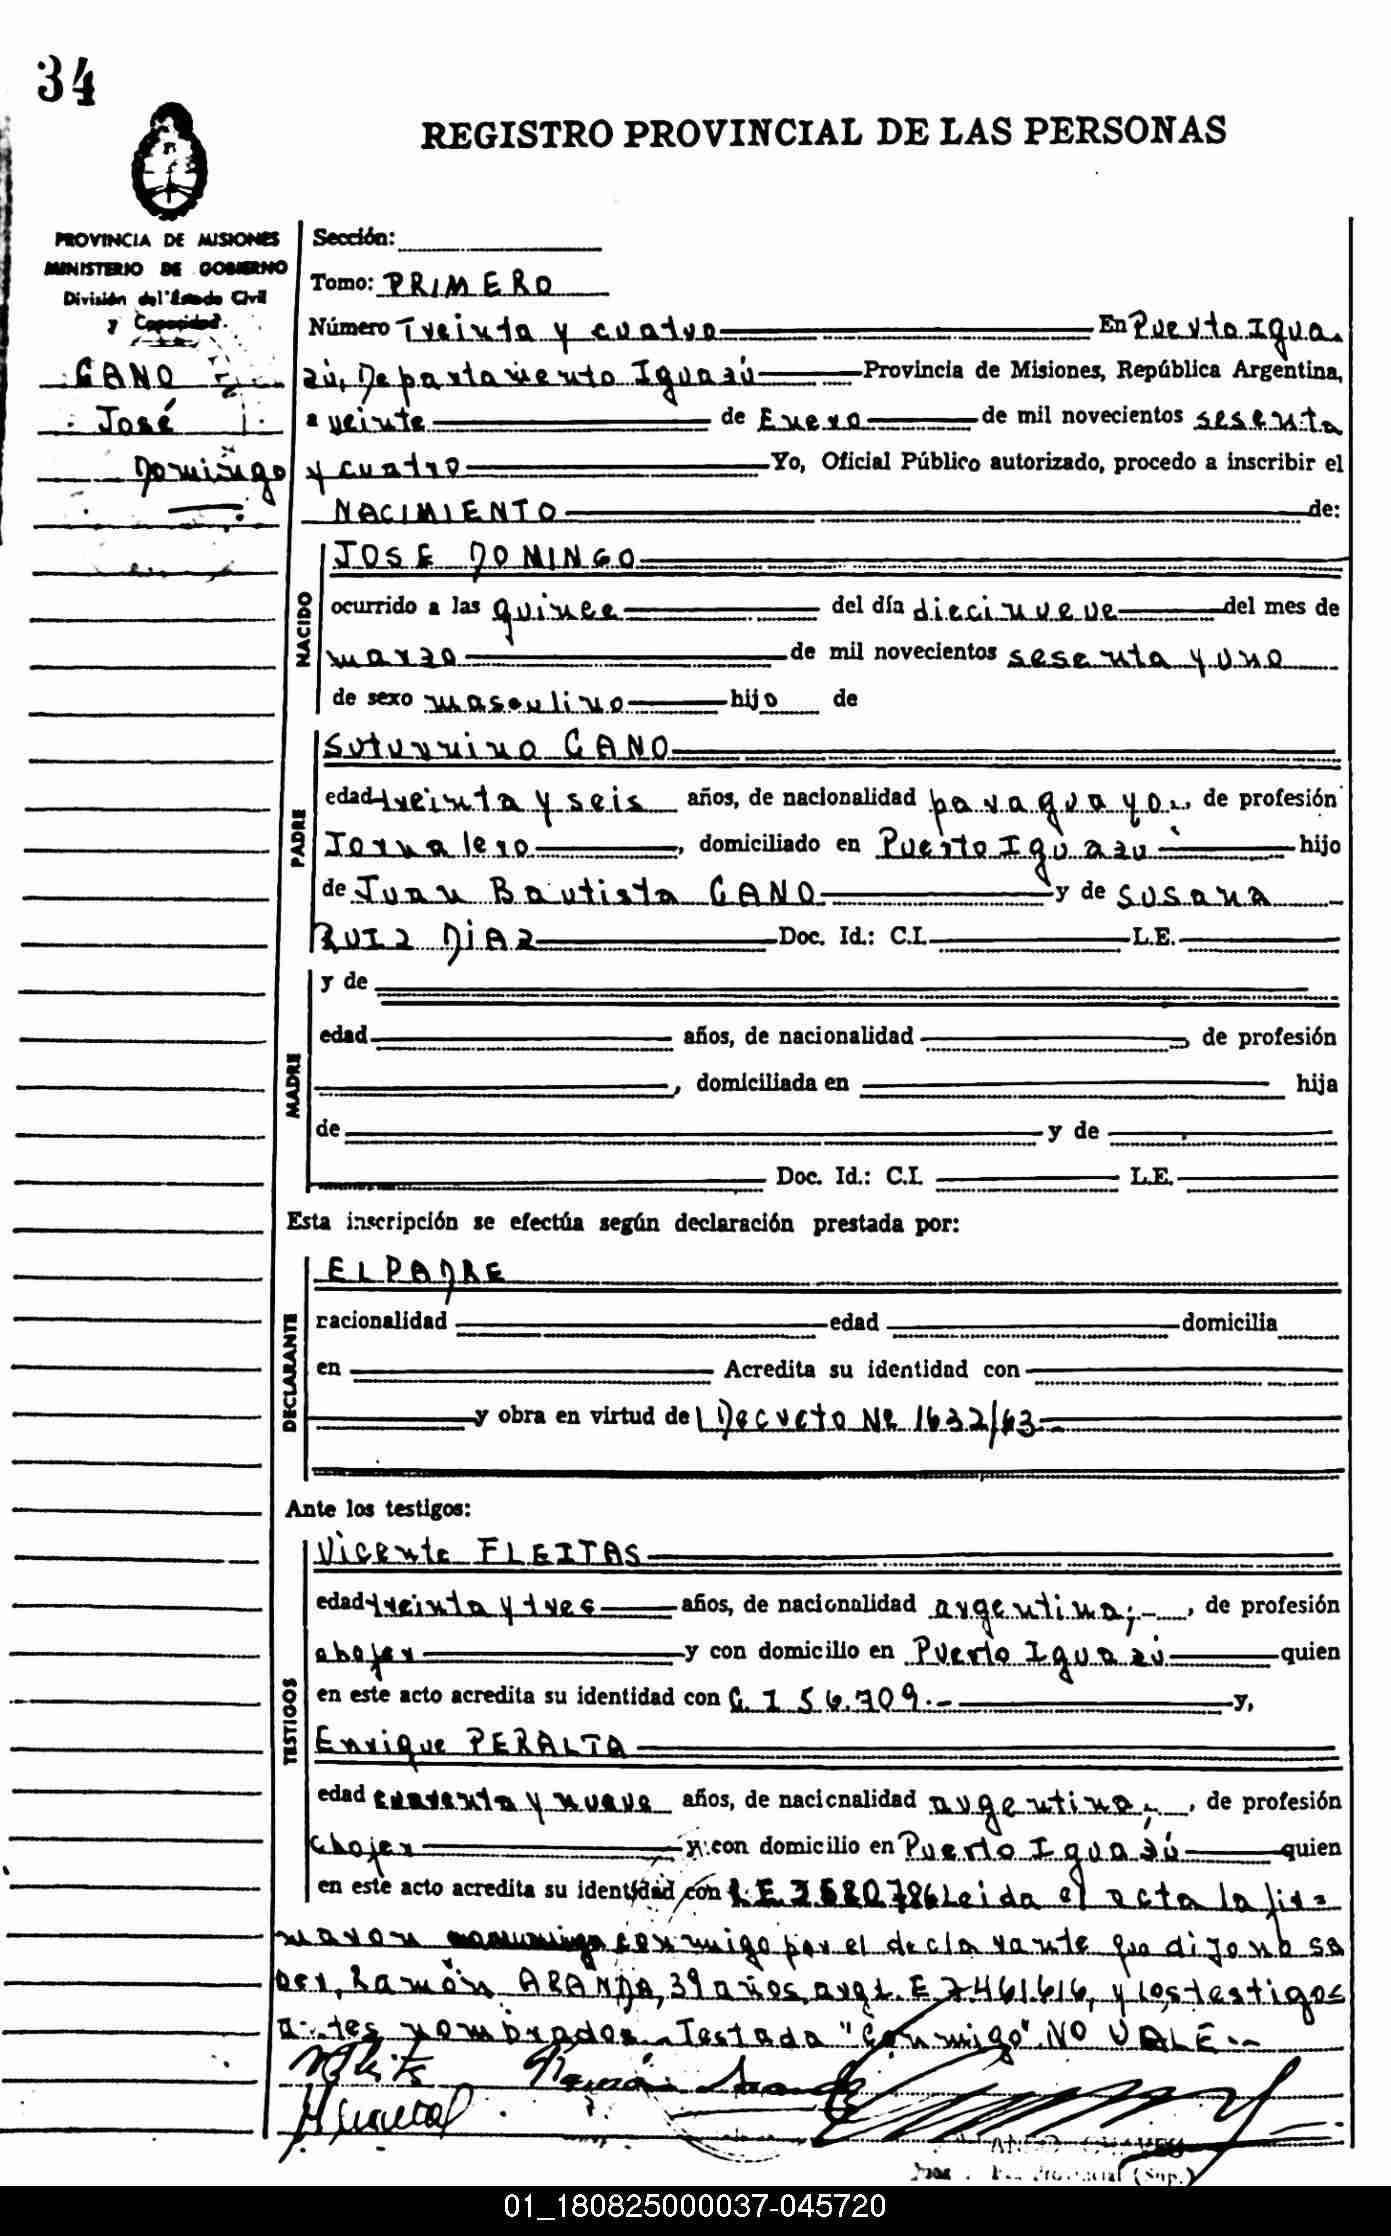 34
REGISTRO PROVINCIAL DE LAS PERSONAS
PROVINCIA DE MISIONES
MINISTERIO DE GOBIERNO
División del Estado Civil
y Capacidad.
CANO
José
Domingo
Sección:
Tomo: PRIMERO
Número Treinta y cuatro En Puerto Igua
zú, Departamento Iguazú Provincia de Misiones, República Argentina,
a veinte de Enero de mil novecientos sesenta
y cuatro Yo, Oficial Público autorizado, procedo a inscribir el
NACIMIENTO de:
NACIDO
JOSE DOMINGO
ocurrido a las quince del día diecinueve del mes de
marzo de mil novecientos sesenta y uno
de sexo masculino hijo de
PADRE
Saturnino CANO
edad treinta y seis años, de nacionalidad paraguayo, de profesión
Jornalero, domiciliado en Puerto Iguazú hijo
de Juan Bautista CANO y de Susana
RUIZ DIAZ Doc. Id.: C.I. L.E.
MADRE
y de
edad años, de nacionalidad , de profesión
, domiciliada en hija
de y de
Doc. Id.: C.I. L.E.
Esta inscripción se efectúa según declaración prestada por:
DECLARANTE
EL PADRE
nacionalidad edad domicilia
en Acredita su identidad con
y obra en virtud de Decreto Nº 1632/63
Ante los testigos:
TESTIGOS
Vicente FLEITAS
edad treinta y tres años, de nacionalidad argentina;-, de profesión
chofer y con domicilio en Puerto Iguazú quien
en este acto acredita su identidad con C.I 56.709.- y,
Enrique PERALTA
edad cuarenta y nueve años, de nacionalidad argentino, de profesión
chofer y con domicilio en Puerto Iguazú quien
en este acto acredita su identidad con L.E. Leida el acta la fir=
maron conmigo por el declarante que dijo no sa
ber, Ramón ARANDA, 39 años, arg L.E 7461616, y los testigos
antes nombrados.- Testada "conmigo" NO VALE.-
Provincial (Sup.)
01_180825000037-045720